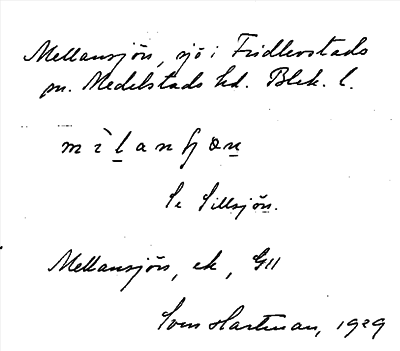 Mellansjön, sjö i Fridlevstads
sn. Medelstads hd. Blek. l.
mìlanʃøn
Se Sillsjön.
Mellansjön, ek, GII
Sven Hartman, 1929